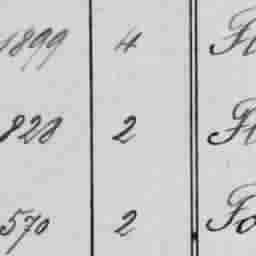 1899 4 Fl
828 2 Fl
570 2 Fo